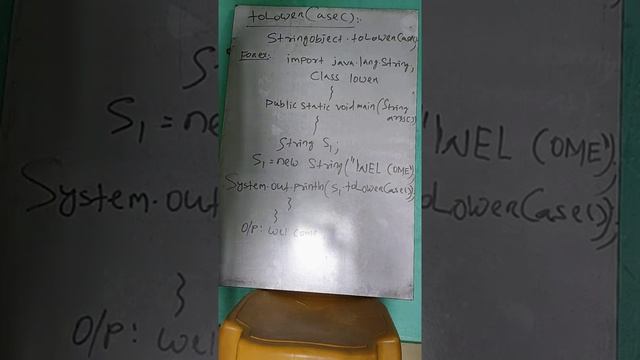 toLowerCase():
Stringobject.toLowerCase();
Forex: import java.lang.String;
Class lower
{
public static void main(String args[])
{
String S1;
S1 = new String("WEL COME");
System.out.println(S1.toLowerCase());
}
}
O/P: wel come